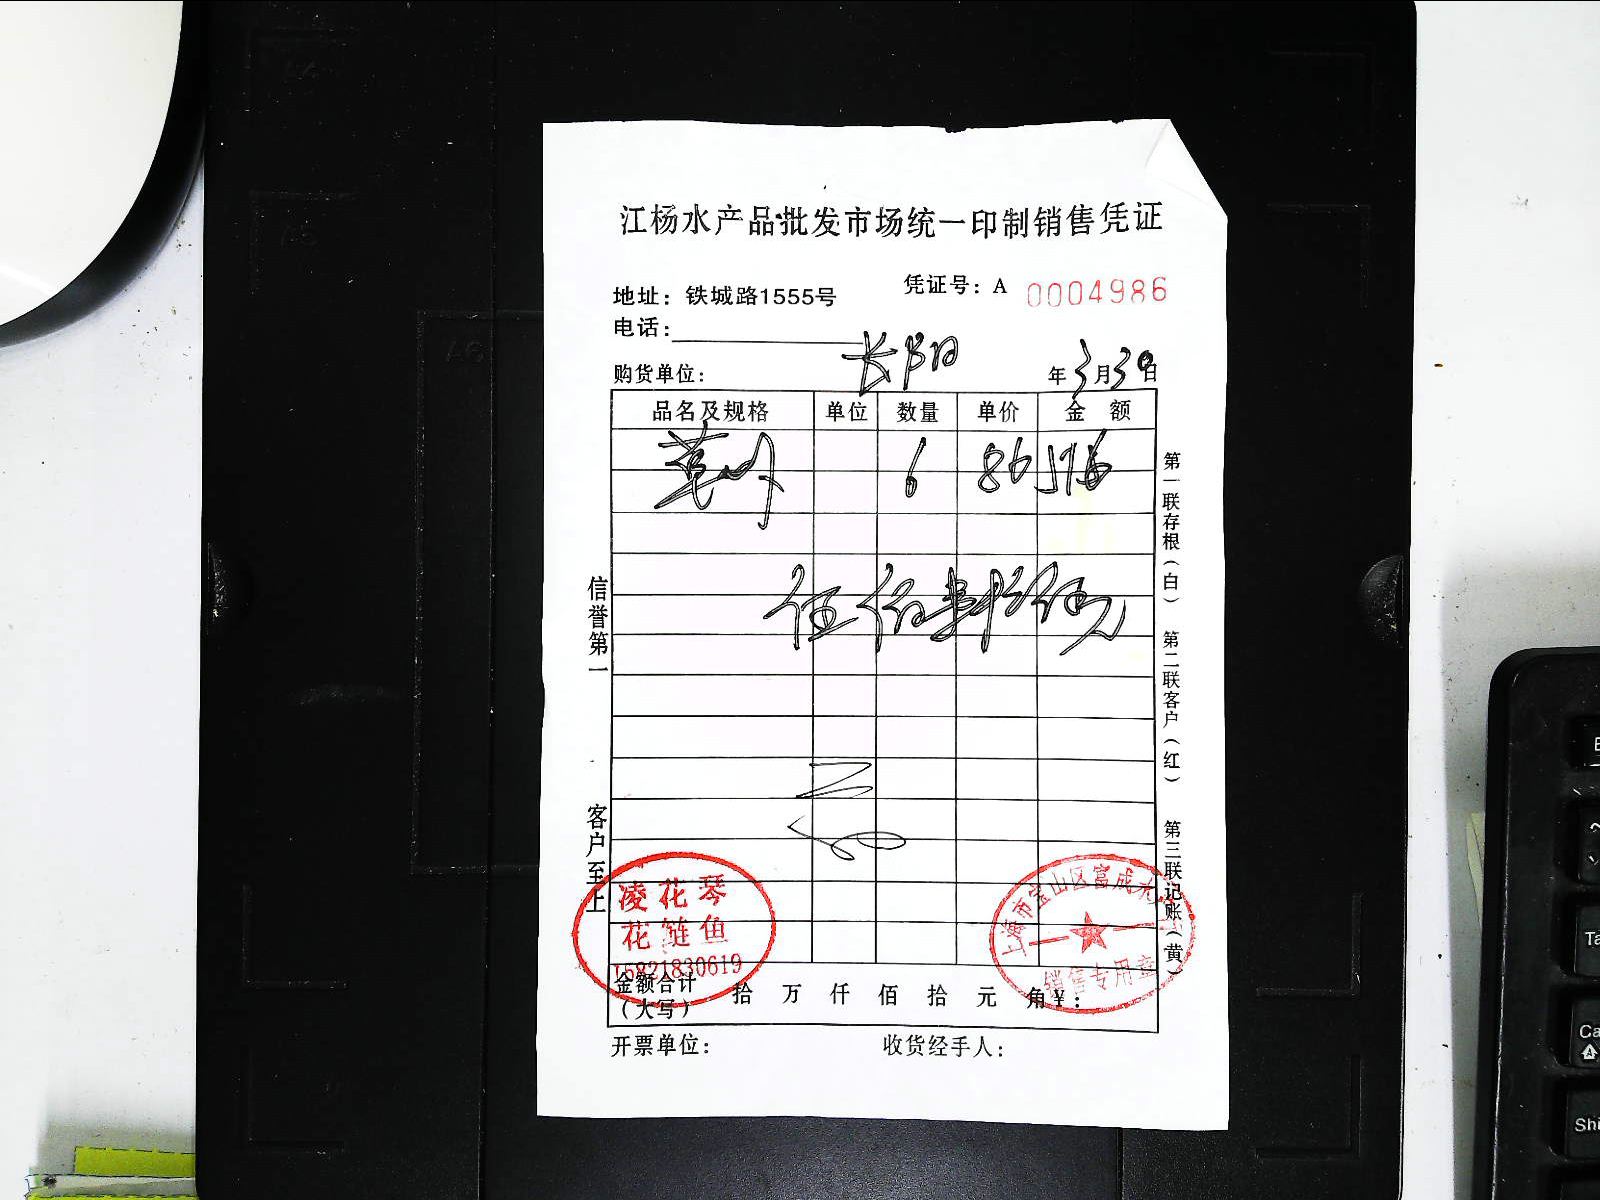 江杨水产品批发市场统一印制销售凭证
凭证号：A 0004986
地址：铁城路1555号
电话：
购货单位：长阳
年3月30日
品名及规格 单位 数量 单价 金额
6 86 516
信誉第一
客户至上
第一联存根（白） 第二联客户（红） 第三联记账（黄）
凌花琴
花鲢鱼
15821830619
上海市宝山区富成水
销售专用章
金额合计（大写） 拾 万 仟 佰 拾 元 角 ¥：
开票单位： 收货经手人：
A6
Ta
Ca
Shi